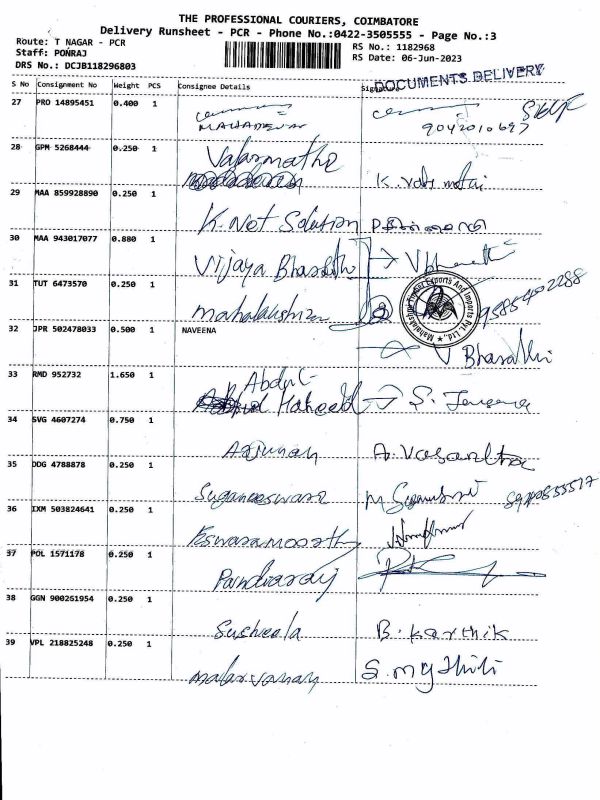 THE PROFESSIONAL COURIERS, COIMBATORE
Delivery Runsheet - PCR - Phone No.:0422-3505555 - Page No.:3
Route: T NAGAR - PCR
Staff: PONRAJ
DRS No.: DCJB118296803
RS No.: 1182968
RS Date: 06-Jun-2023
DOCUMENTS DELIVERY
S No Consignment No Weight PCS Consignee Details Signature
27 PRO 14895451 0.400 1
MAHADEVAN 9042010697
28 GPM 5268444 0.250 1
Valarmathe
29 MAA 859928890 0.250 1
K. Not Solution
30 MAA 943017077 0.880 1
Vijaya Bharathi
31 TUT 6473570 0.250 1
Mahalakshmi 9585402288
32 JPR 502478033 0.500 1 NAVEENA
V Bharathi
33 RMD 952732 1.650 1
Abdul
Haheed
34 SVG 4607274 0.750 1
Arjunan A. Vasantha
35 DDG 4788878 0.250 1
Suganeeswara
36 IXM 503824641 0.250 1
Eswaramoorth
37 POL 1571178 0.250 1
Pandiaraj
38 GGN 900261954 0.250 1
Susheela B. karthik
39 VPL 218825248 0.250 1
Malarvanan S. mythili